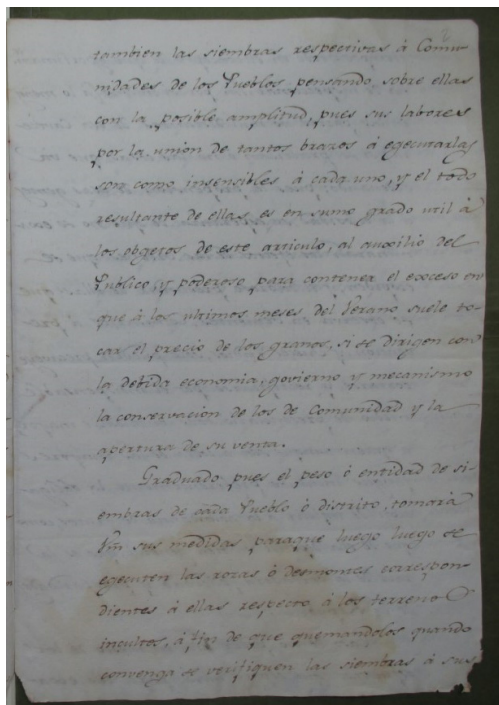 tambien las siembras respectivas á Comu-
nidades de los Pueblos, pensando sobre ellas
con la posible amplitud, pues sus labores
por la union de tantos brazos á egecutarlas
son como insensibles á cada uno, y el todo
resultante de ellas es en sumo grado util á
los obgetos de este articulo, al auxilio del
Publico, y poderoso para contener el exceso en
que á los ultimos meses del Verano suele to-
car el precio de los granos, si se dirigen con
la debida economia, govierno y mecanismo
la conservacion de los de Comunidad y la
apertura de su venta.
Graduado pues el peso ó entidad de si-
embras de cada Pueblo ó distrito, tomará
Vm sus medidas paraque luego luego se
egecuten las rozas ó desmontes correspon-
dientes á ellas respecto á los terrenos
incultos, á fin de que quemandolos quando
convenga se verifiquen las siembras á sus